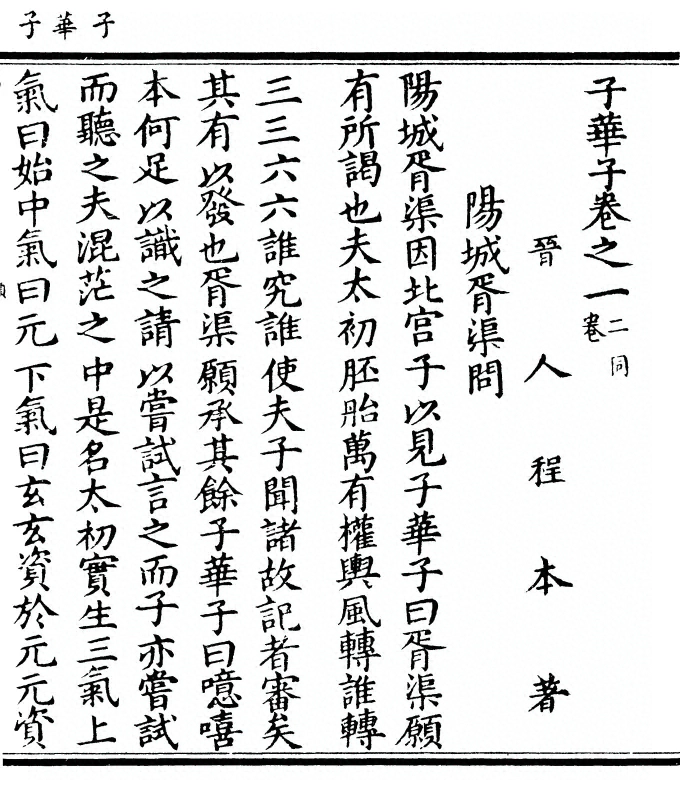 子華子
子華子卷之一二同卷
晉人程本著
陽城胥渠問
陽城胥渠因北宮子以見子華子曰胥渠願
有所謁也夫太初胚胎萬有權輿風轉誰轉
三三六六誰究誰使夫子聞諸故記者審矣
其有以發也胥渠願承其餘子華子曰噫嘻
本何足以識之請以嘗試言之而子亦嘗試
而聽之夫混茫之中是名太初實生三氣上
氣曰始中氣曰元下氣曰玄玄資於元元資